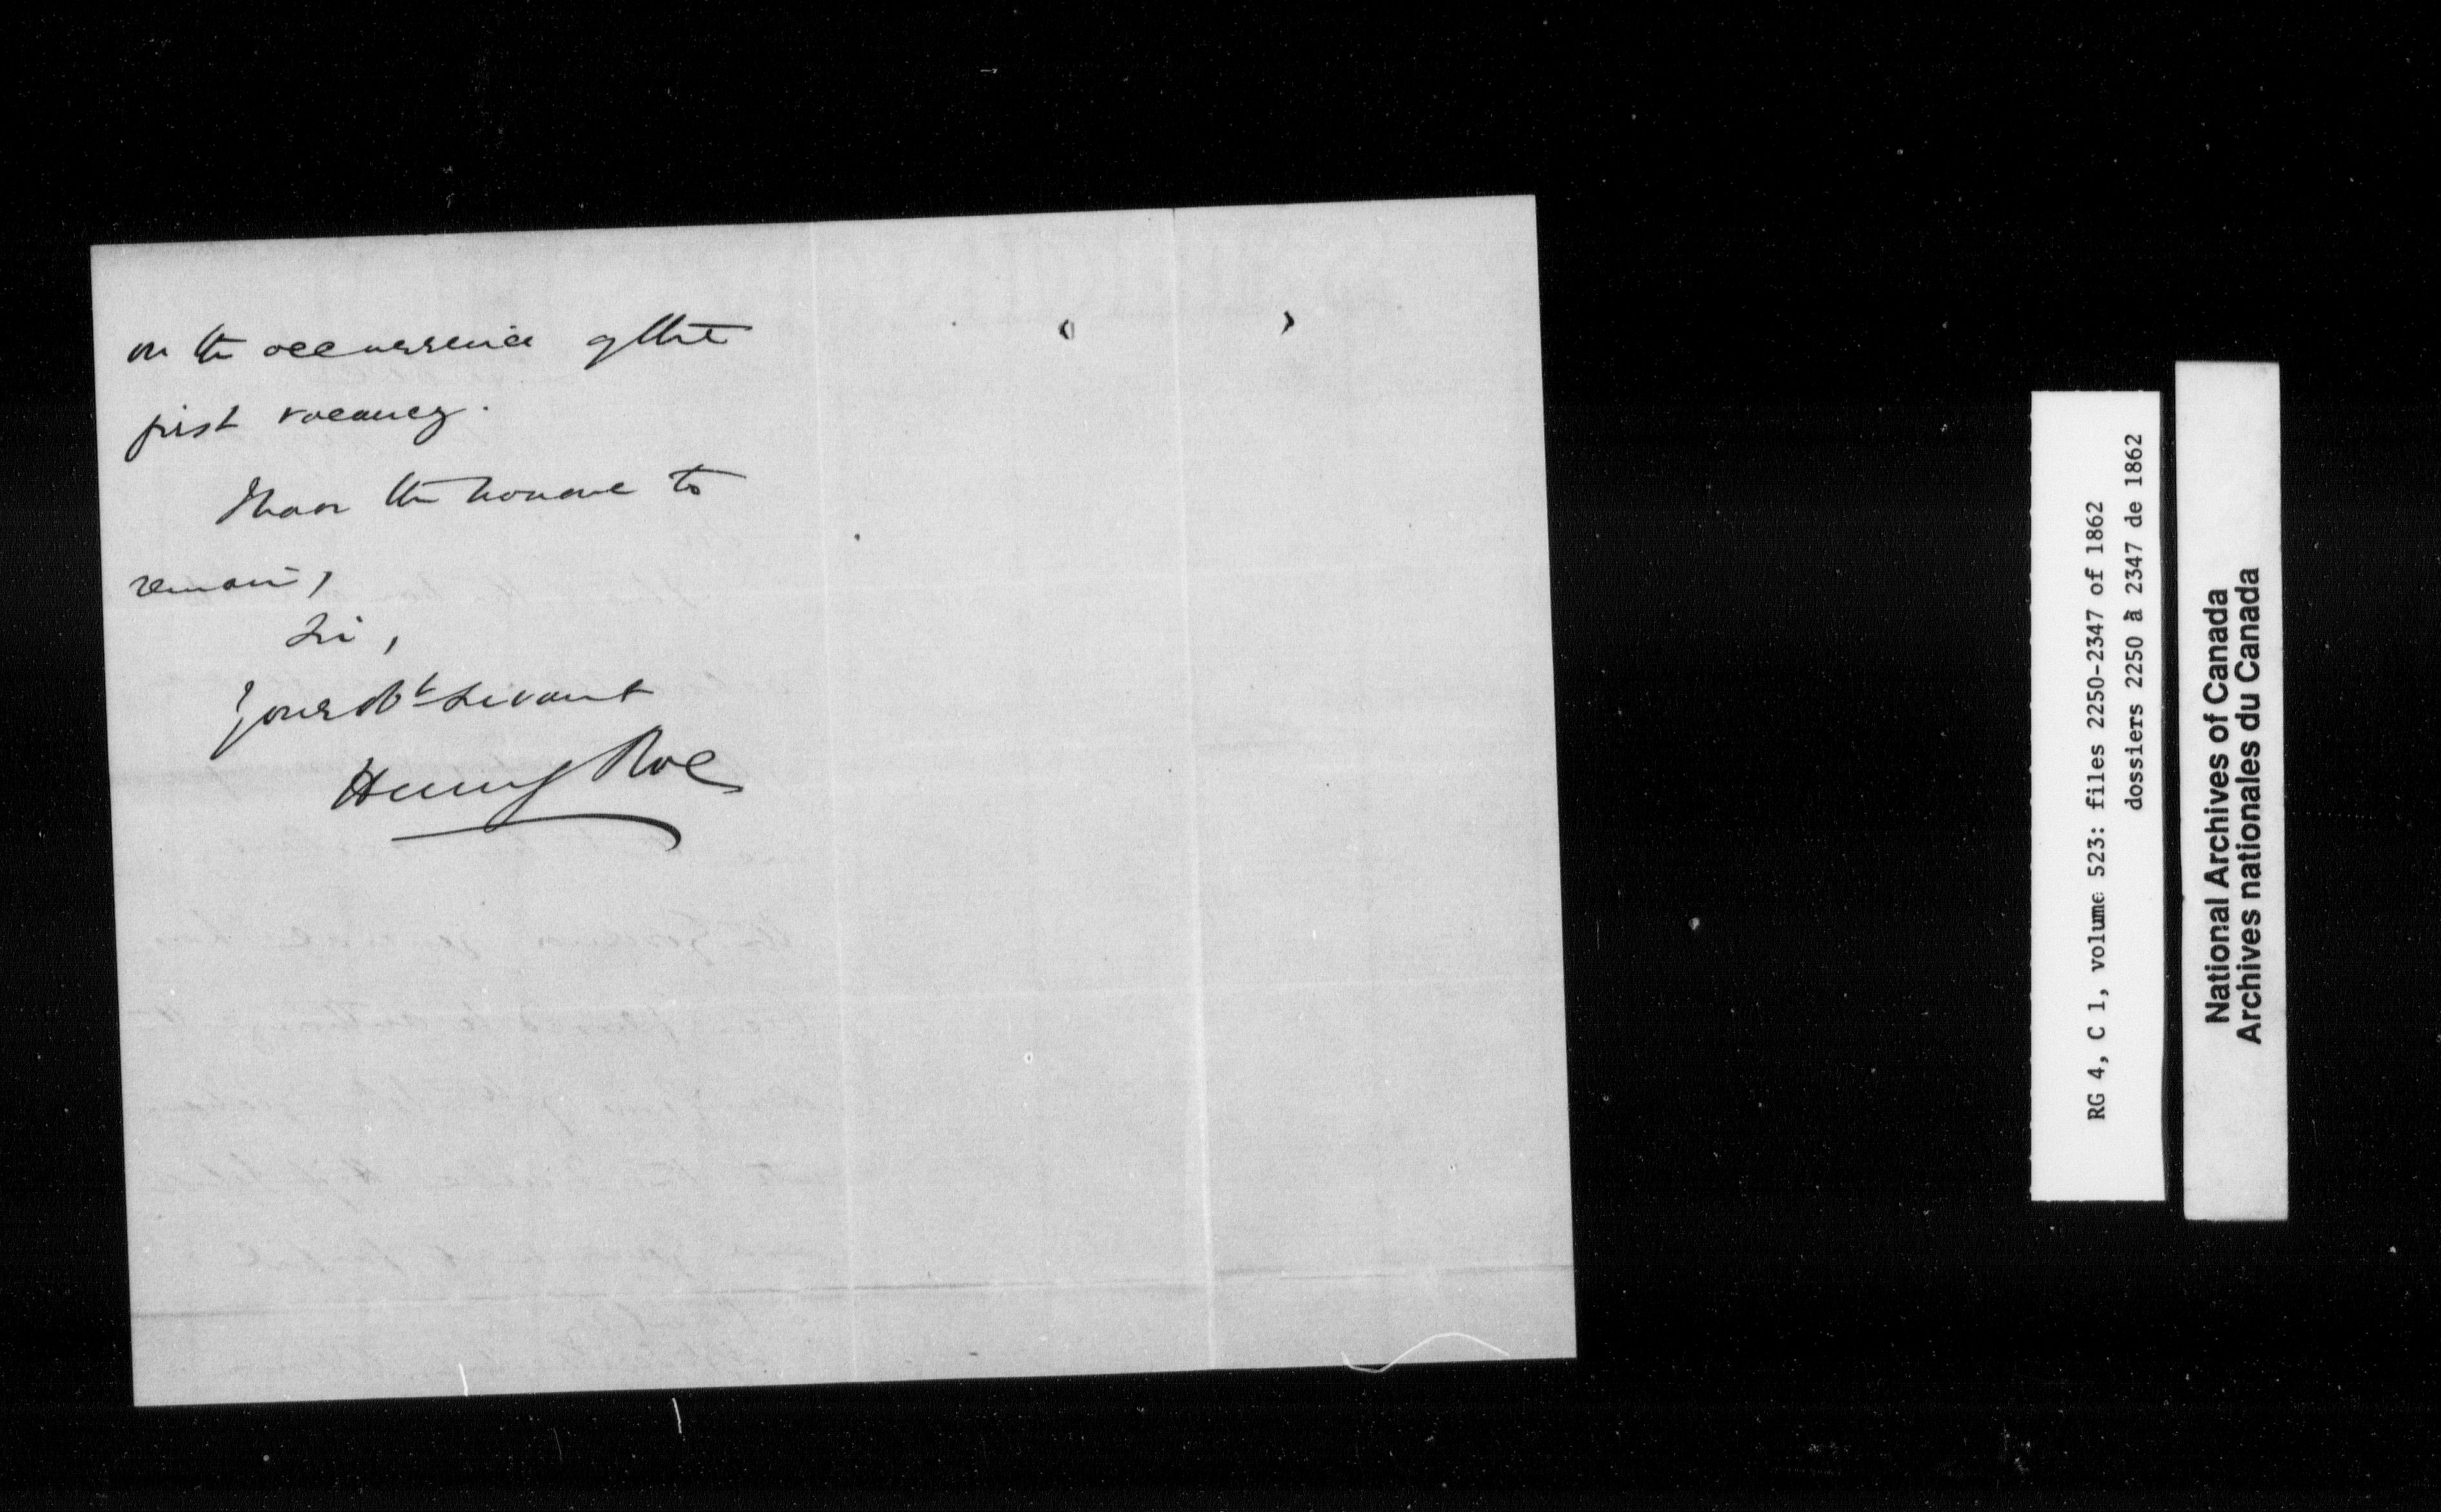 on the occurrence of the
first vacancy.
I have the honour to
remain,
Sir,
Your Obt Servant
Henry Roe
RG 4, C 1, volume 523: files 2250-2347 of 1862
dossiers 2250 à 2347 de 1862
National Archives of Canada
Archives nationales du Canada